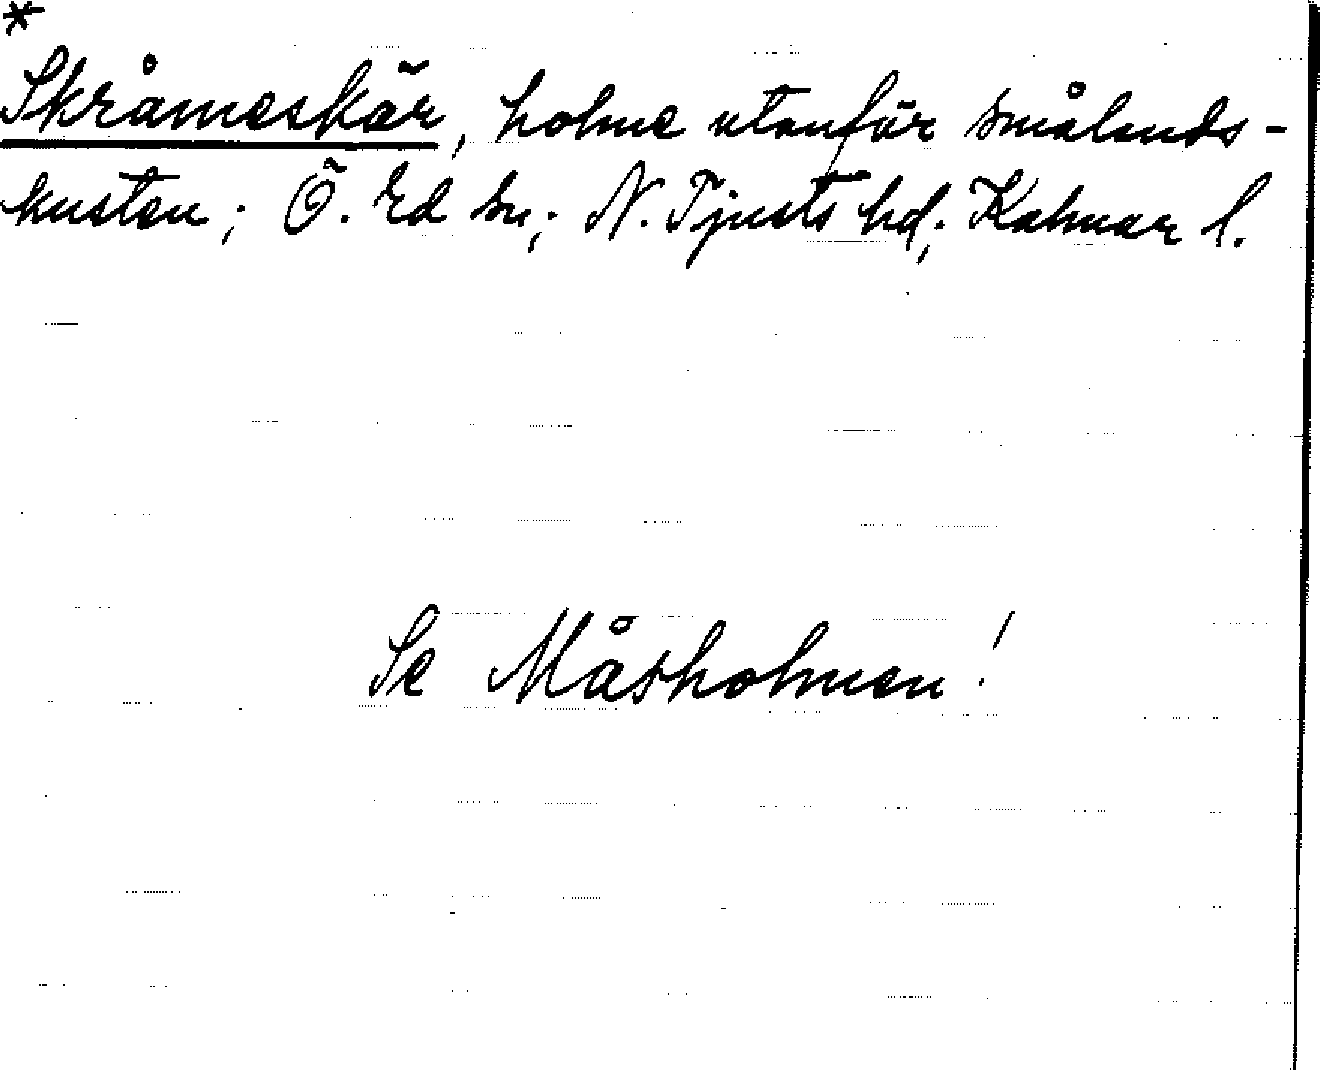 *
Skråmeskär, holme utanför smålands-
kusten; Ö. Ed sn; N. Tjusts hd; Kalmar l.
Se Måsholmen!